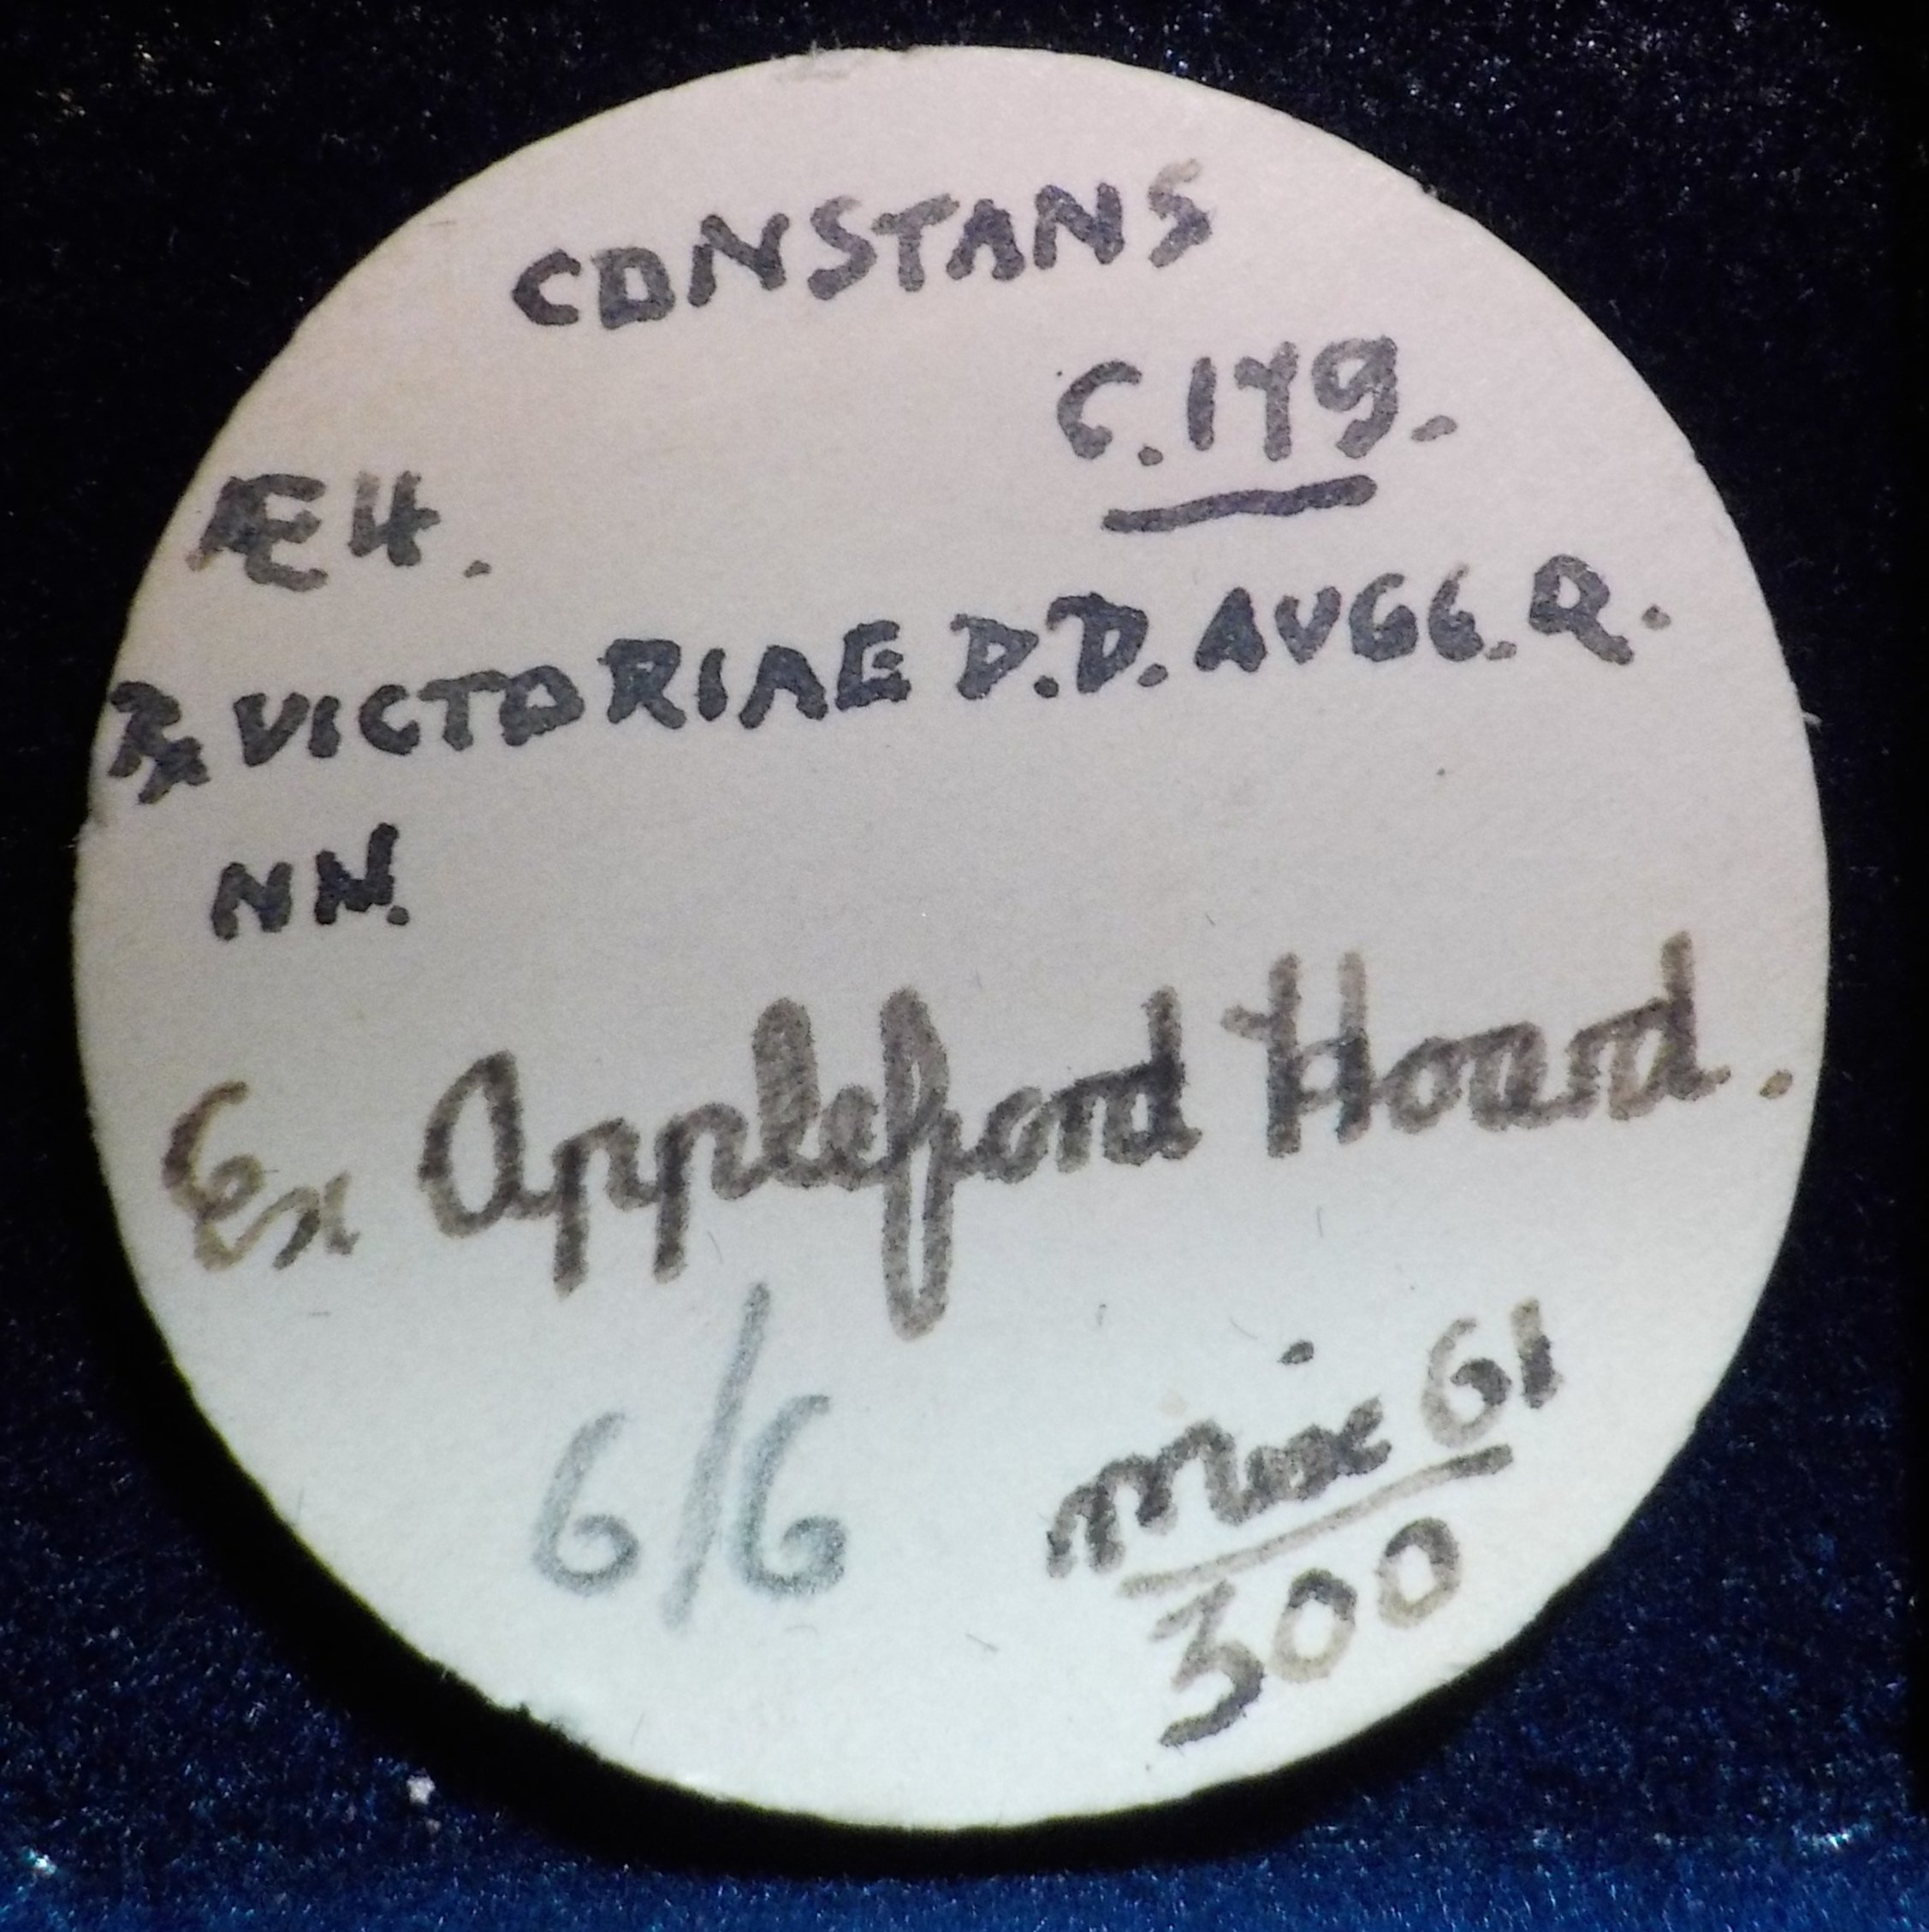 CONSTANS
C.179.
Æ4.
℞ VICTORIAE D.D. AVGG. Q.
NN.
Ex Appleford Hoard.
6/6
Mix 61
300